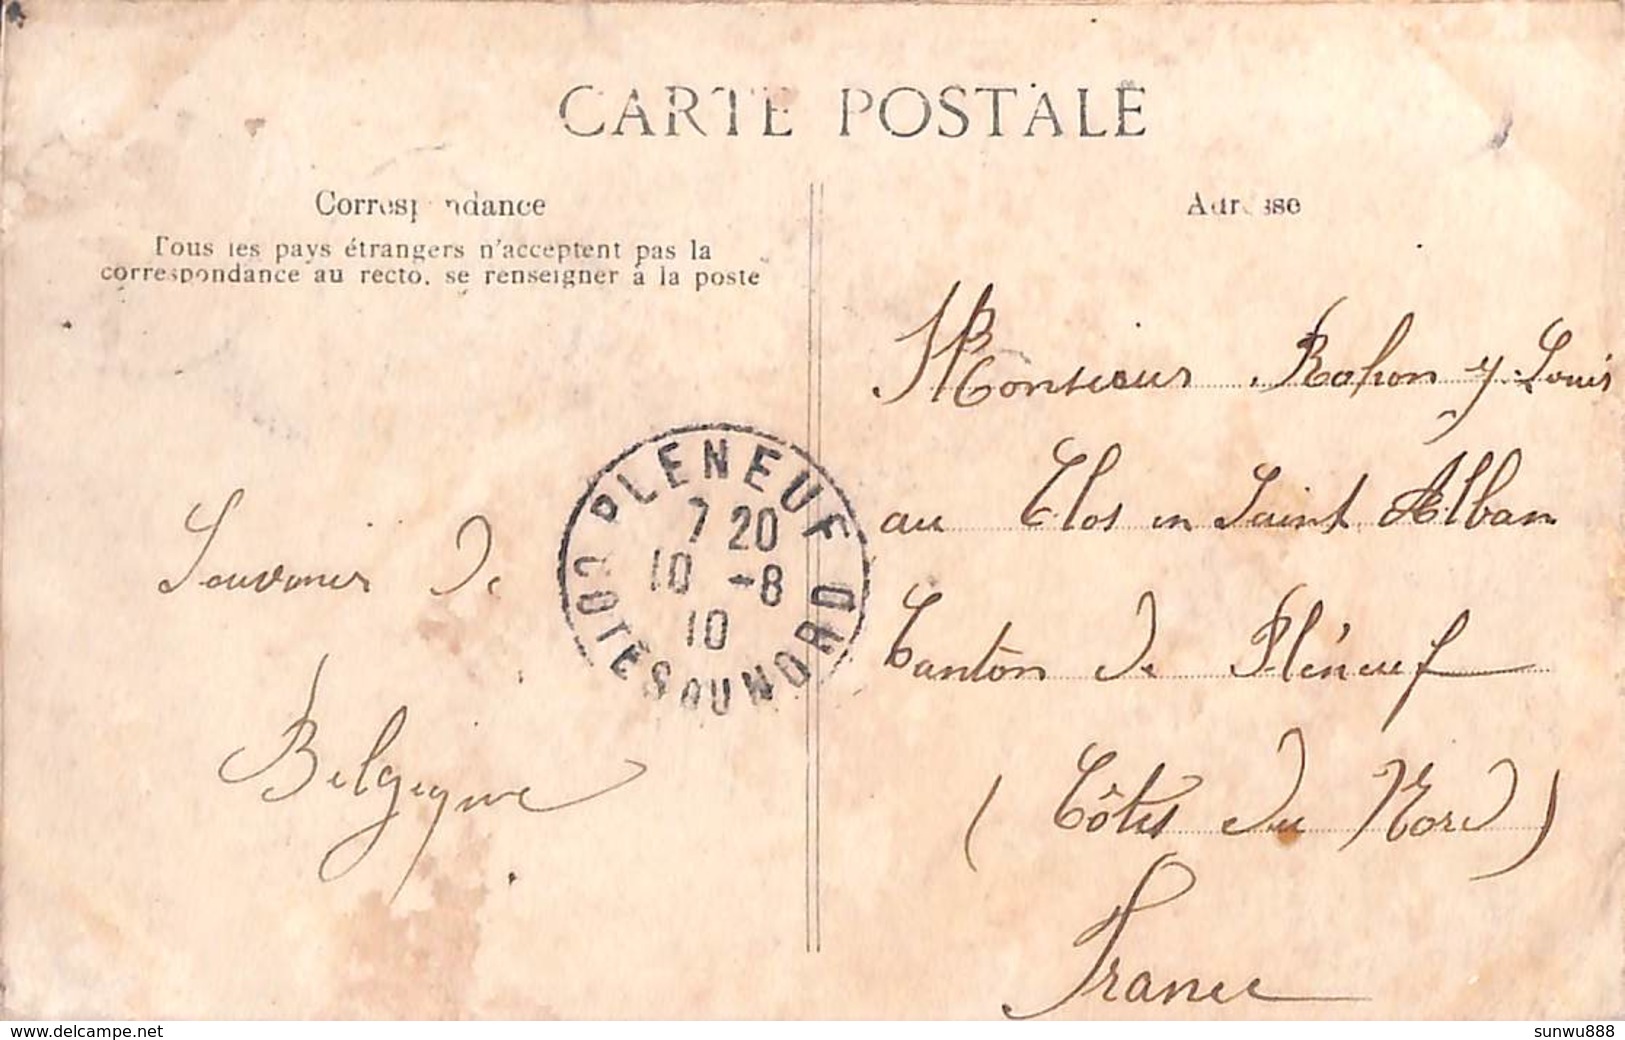 CARTE POSTALE
Correspondance
Tous les pays étrangers n'acceptent pas la
correspondance au recto, se renseigner à la poste
Souvenir de
Belgique
PLENEUF
7 20
10 -8
10
COTES DU NORD
Adresse
Monsieur Rohon Louis
au Clos en Saint Alban
Canton de Pléneuf
(Côtes du Nord)
France
www.delcampe.net
sunwu888